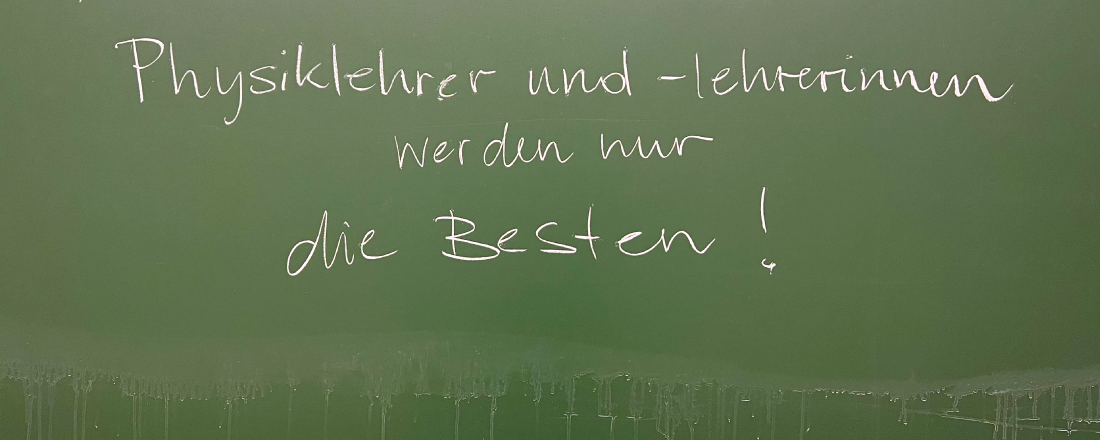 Physiklehrer und -lehrerinnen
werden nur
die Besten!